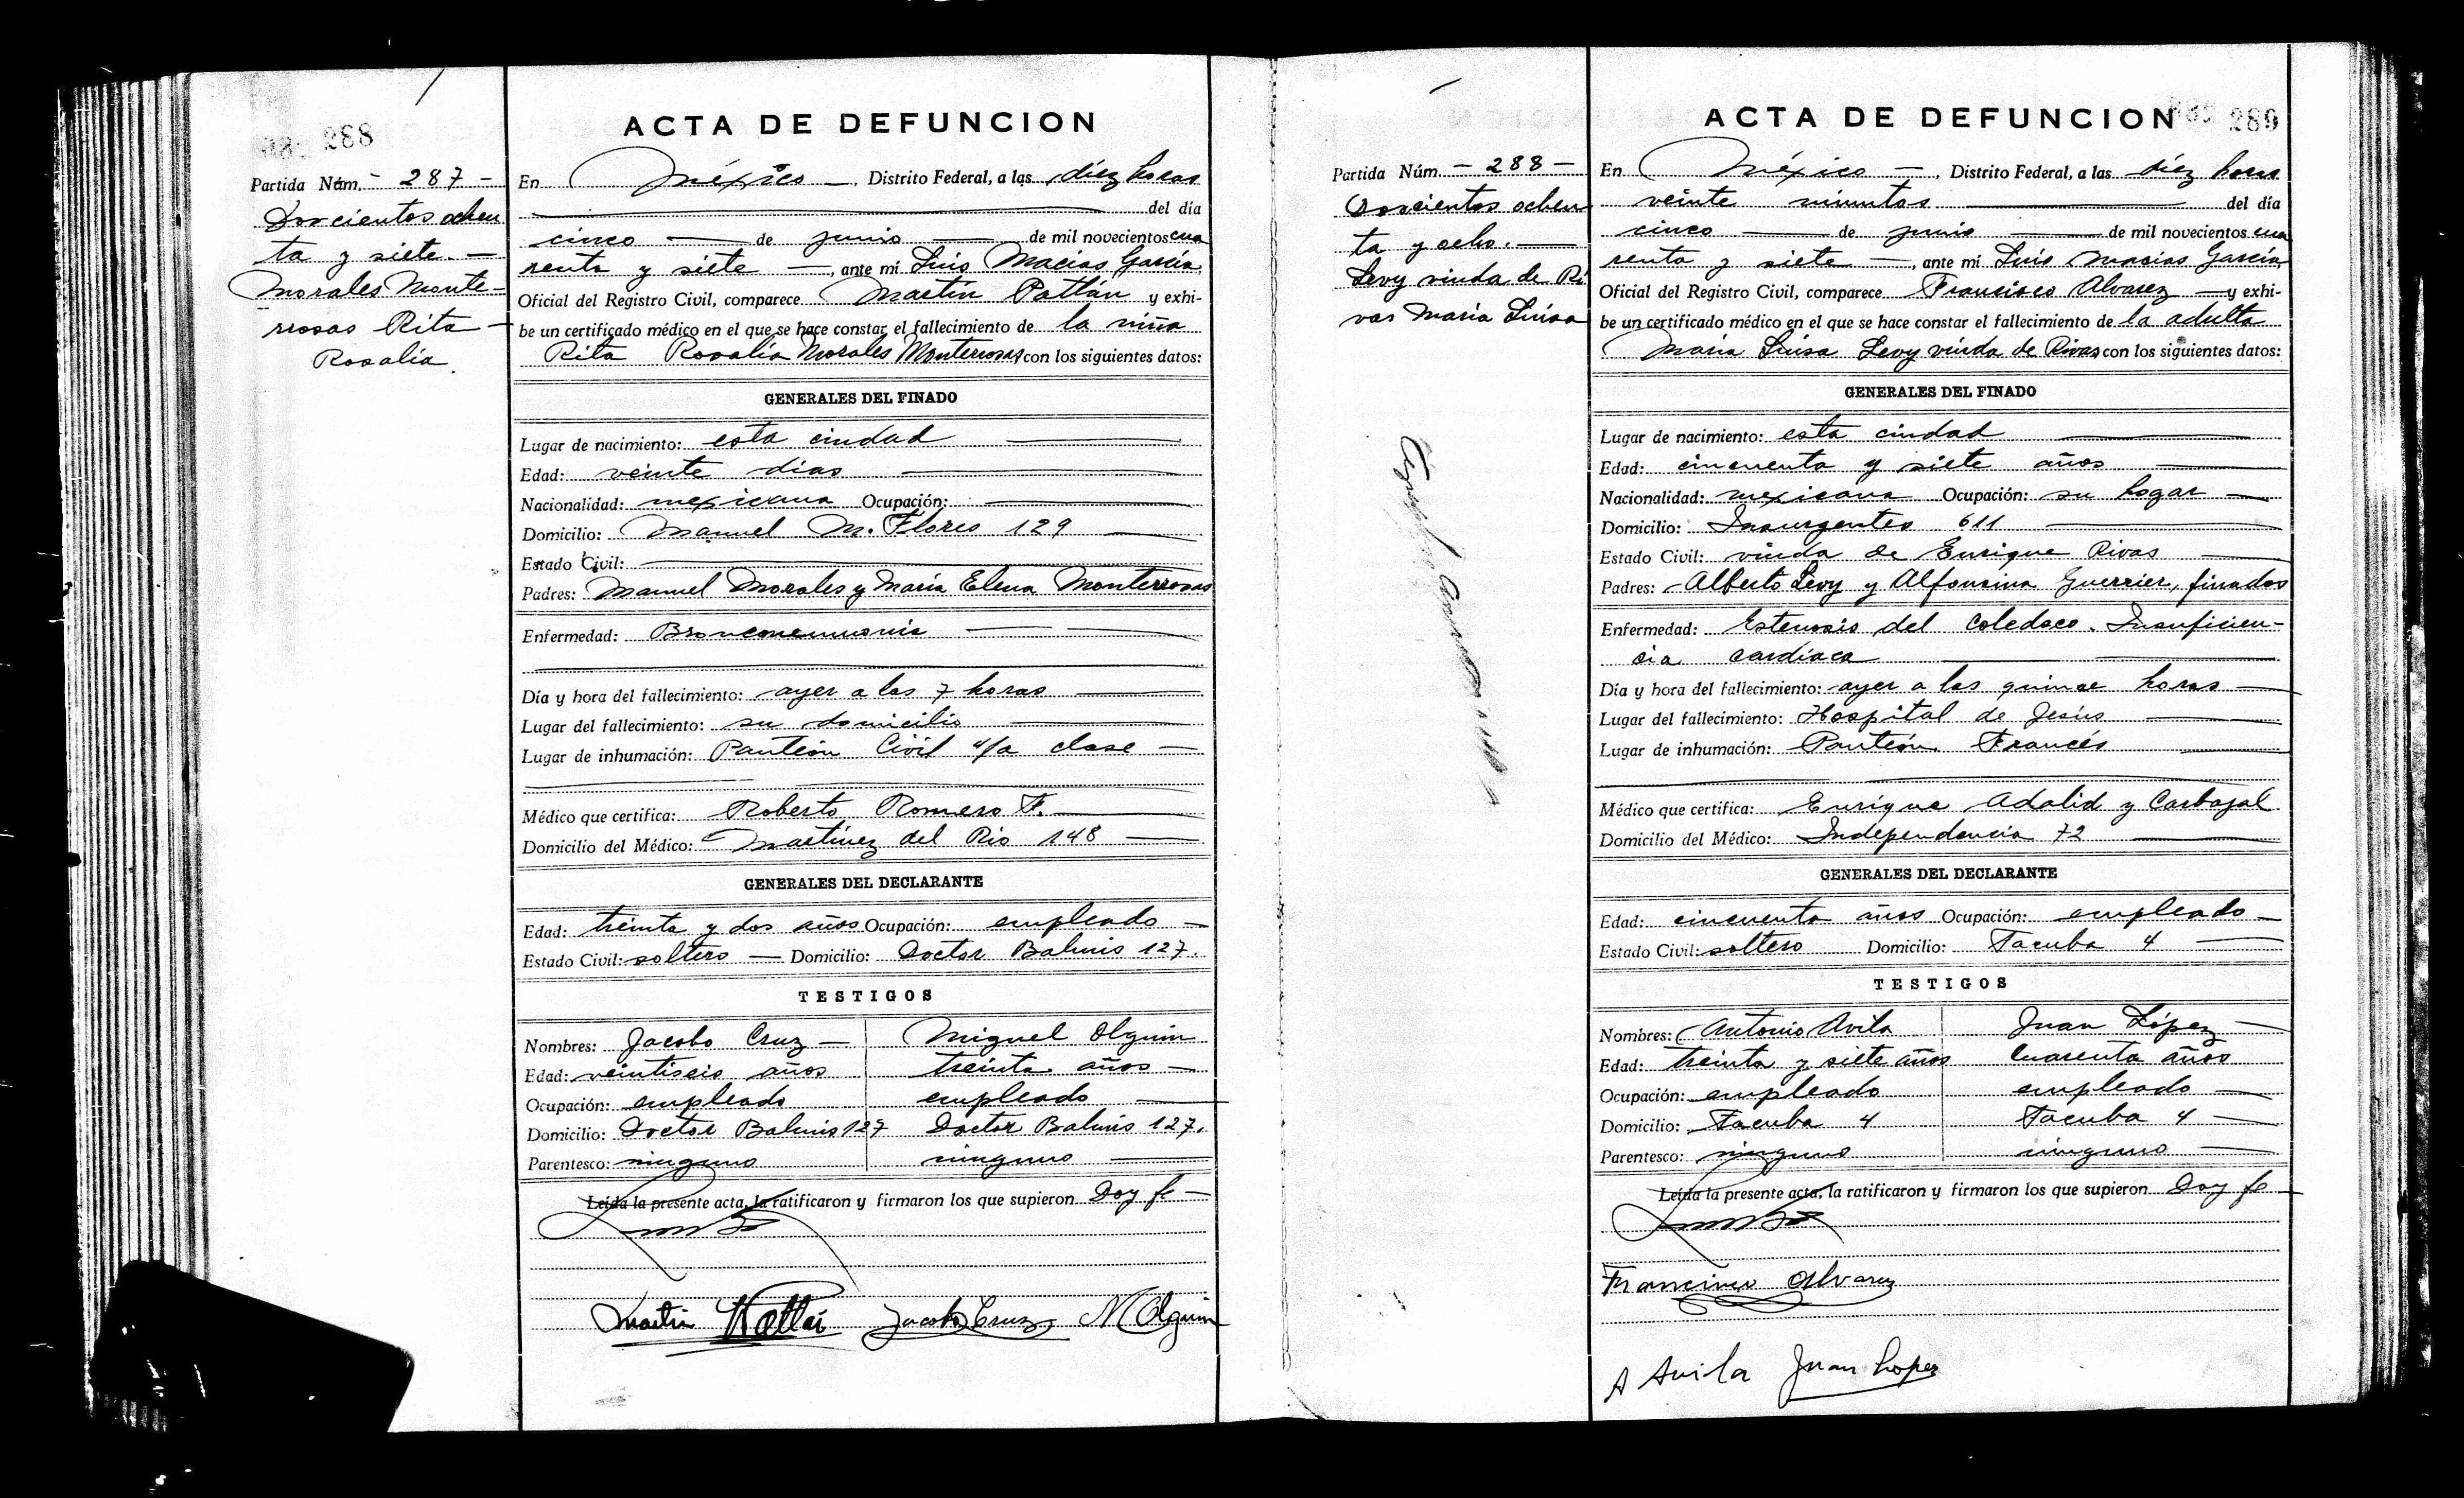 288
ACTA DE DEFUNCION
Partida Núm. - 287 -
Doscientos ochen
ta y siete. -
Morales Monte-
rrosas Rita -
Rosalía.
En México -, Distrito Federal, a las diéz horas
del día
cinco - de junio - de mil novecientos cua
renta y siete -, ante mí Luis Macias García,
Oficial del Registro Civil, comparece Martín Patlán y exhi-
be un certificado médico en el que se hace constar el fallecimiento de la niña
Rita Rosalía Morales Monterrosas con los siguientes datos:
GENERALES DEL FINADO
Lugar de nacimiento: esta ciudad
Edad: veinte dias
Nacionalidad: mexicana Ocupación:
Domicilio: Manuel M. Flores 129
Estado Civil:
Padres: Manuel Morales y María Elena Monterrosas
Enfermedad: Bronconeumonia
Día y hora del fallecimiento: ayer a las 7 horas
Lugar del fallecimiento: su domicilio
Lugar de inhumación: Panteón Civil 4/a clase -
Médico que certifica: Roberto Romero F.
Domicilio del Médico: Martínez del Rio 148
GENERALES DEL DECLARANTE
Edad: treinta y dos años Ocupación: empleado -
Estado Civil: soltero - Domicilio: Doctor Balmis 127.
TESTIGOS
Nombres: Jacobo Cruz - Miguel Olguin
Edad: veintiseis años treinta años -
Ocupación: empleado empleado
Domicilio: Doctor Balmis 127 Doctor Balmis 127.
Parentesco: ninguno ninguno
Leída la presente acta, la ratificaron y firmaron los que supieron Doy fe -
Martin Jacobo Cruz M Olguin
289
ACTA DE DEFUNCION
Partida Núm. - 288 -
Doscientos ochen
ta y ocho. -
Levy viuda de Ri
vas María Luisa
En México -, Distrito Federal, a las diéz horas
veinte minutos del día
cinco - de junio - de mil novecientos cua
renta y siete -, ante mí Luis Macias García,
Oficial del Registro Civil, comparece Francisco Alvarez - y exhi-
be un certificado médico en el que se hace constar el fallecimiento de la adulta
María Luisa Levy viuda de Rivas con los siguientes datos:
GENERALES DEL FINADO
Lugar de nacimiento: esta ciudad
Edad: cincuenta y siete años
Nacionalidad: mexicana Ocupación: su hogar
Domicilio: Insurgentes 611
Estado Civil: viuda de Enrique Rivas
Padres: Alberto Levy y Alfonsina Guerrier, finados
Enfermedad: Estenosis del coledoco. Insuficien-
cia cardíaca
Día y hora del fallecimiento: ayer a las quince horas
Lugar del fallecimiento: Hospital de Jesús
Lugar de inhumación: Panteón Francés
Médico que certifica: Enrique Adalid y Carbajal
Domicilio del Médico: Independencia 72
GENERALES DEL DECLARANTE
Edad: cincuenta años Ocupación: empleado -
Estado Civil: soltero Domicilio: Tacuba 4
TESTIGOS
Nombres: Antonio Avila Juan López -
Edad: treinta y siete años Cuarenta años
Ocupación: empleado empleado -
Domicilio: Tacuba 4 Tacuba 4 -
Parentesco: ninguno ninguno
Leída la presente acta, la ratificaron y firmaron los que supieron Doy fe
Francisco Alvarez
A Avila Juan Lopez